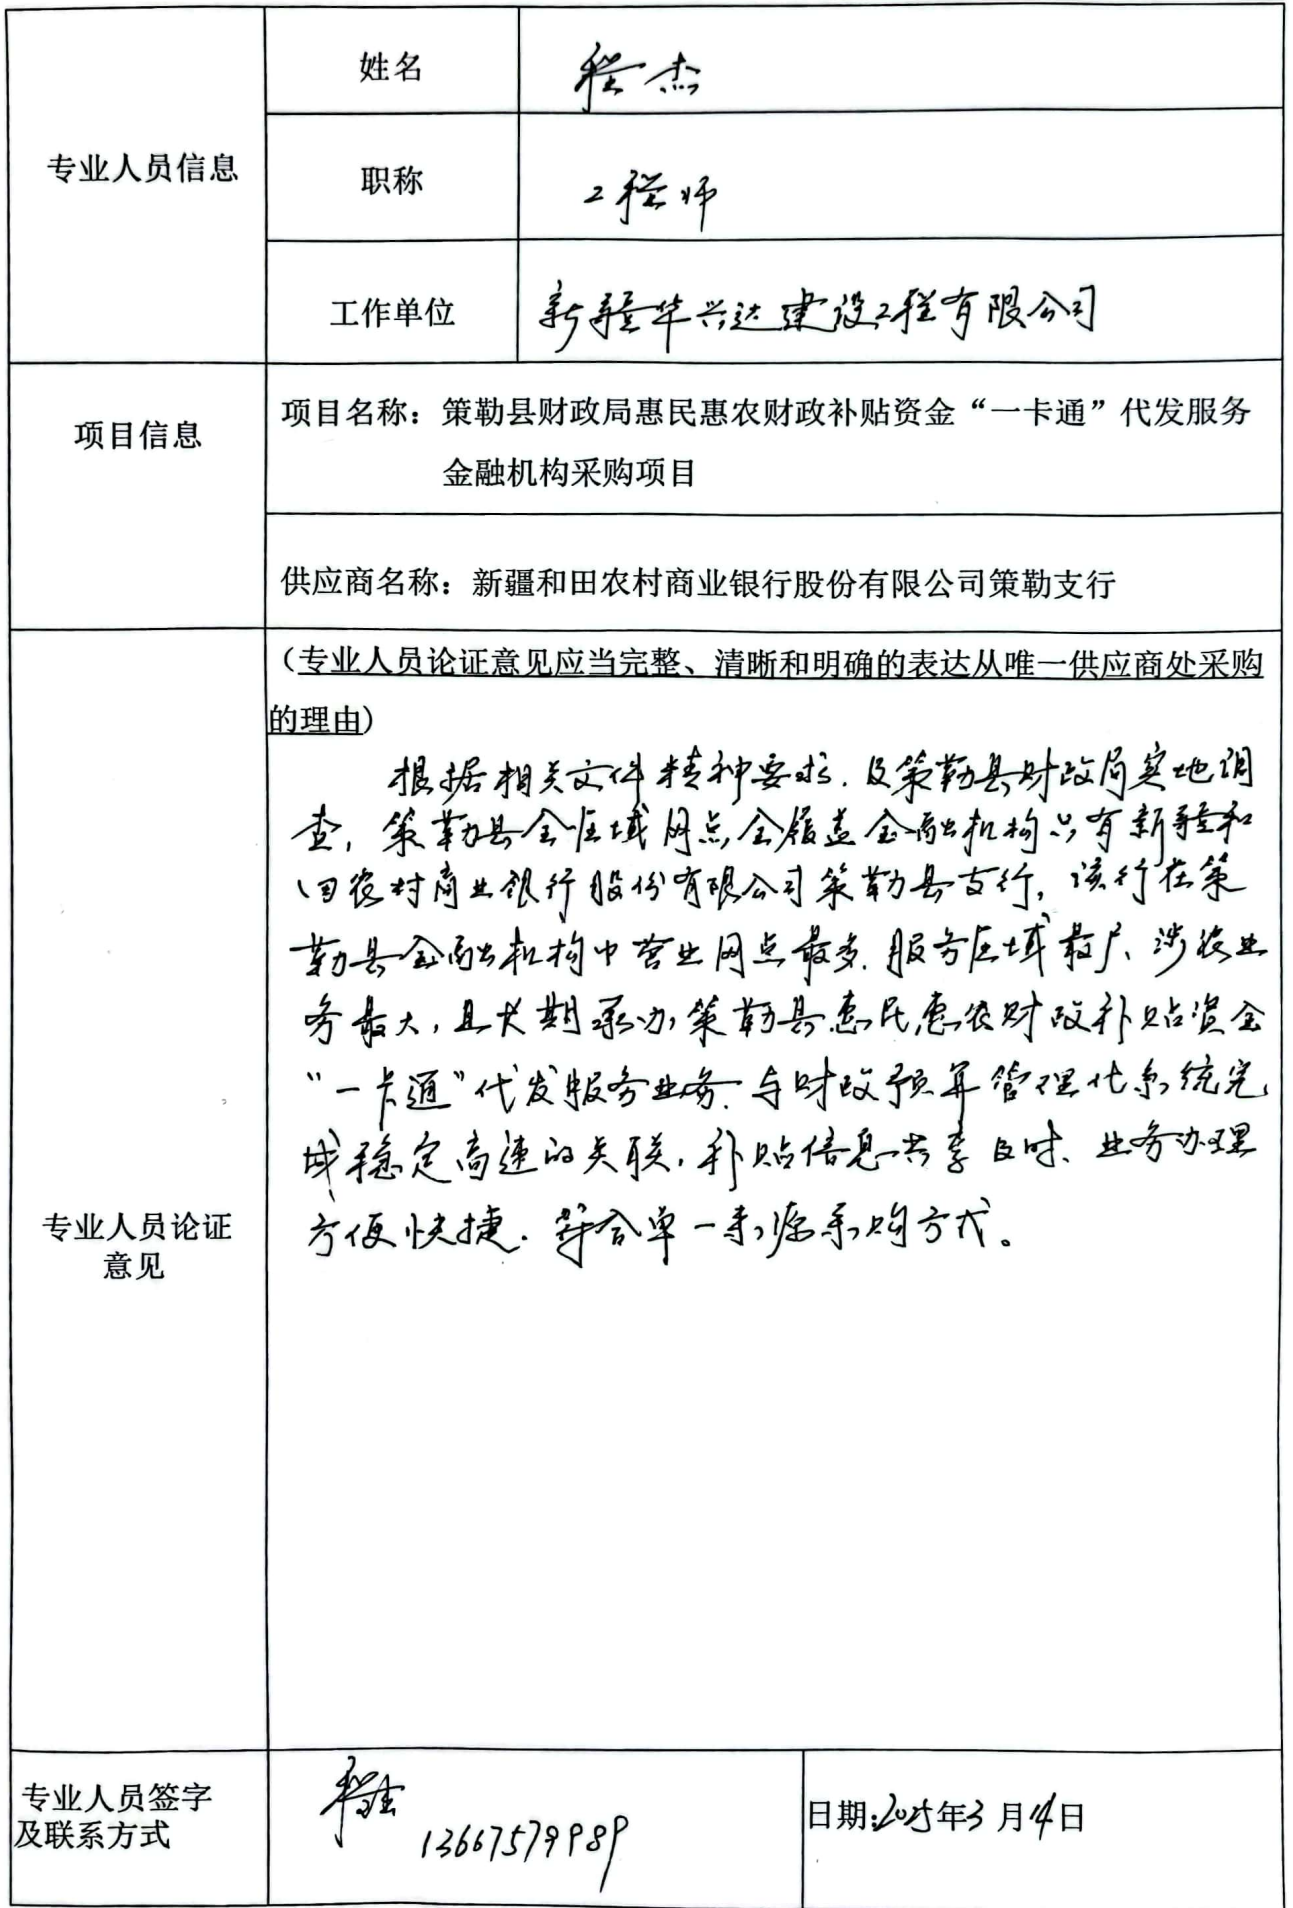 专业人员信息
姓名
程杰
职称
工程师
工作单位
新疆华兴达建设工程有限公司
项目信息
项目名称：策勒县财政局惠民惠农财政补贴资金“一卡通”代发服务
金融机构采购项目
供应商名称：新疆和田农村商业银行股份有限公司策勒支行
专业人员论证
意见
（专业人员论证意见应当完整、清晰和明确的表达从唯一供应商处采购
的理由）
根据相关文件精神要求，及策勒县财政局实地调
查，策勒县全区域网点全覆盖金融机构只有新疆和
田农村商业银行股份有限公司策勒县支行，该行在策
勒县金融机构中营业网点最多、服务区域最广、涉农业
务最大，且长期承办策勒县惠民惠农财政补贴资金
“一卡通”代发服务业务、与财政预算管理化系统完
成稳定高速的关联，补贴信息共享及时、业务办理
方便快捷。符合单一来源采购方式。
专业人员签字
及联系方式
程杰
13667579989
日期:2025年3月14日